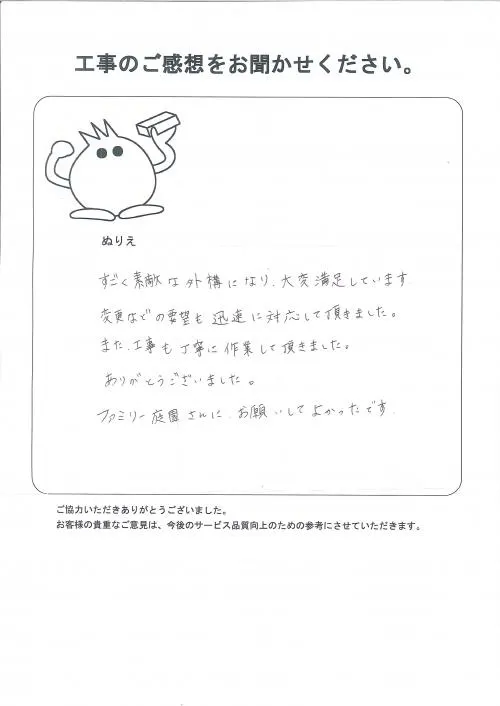 工事のご感想をお聞かせください。
ぬりえ
すごく素敵な外構になり、大変満足しています
変更などの要望も迅速に対応して頂きました。
また、工事も丁寧に作業して頂きました。
ありがとうございました。
ファミリー庭園さんに、お願いしてよかったです
ご協力いただきありがとうございました。
お客様の貴重なご意見は、今後のサービス品質向上のための参考にさせていただきます。